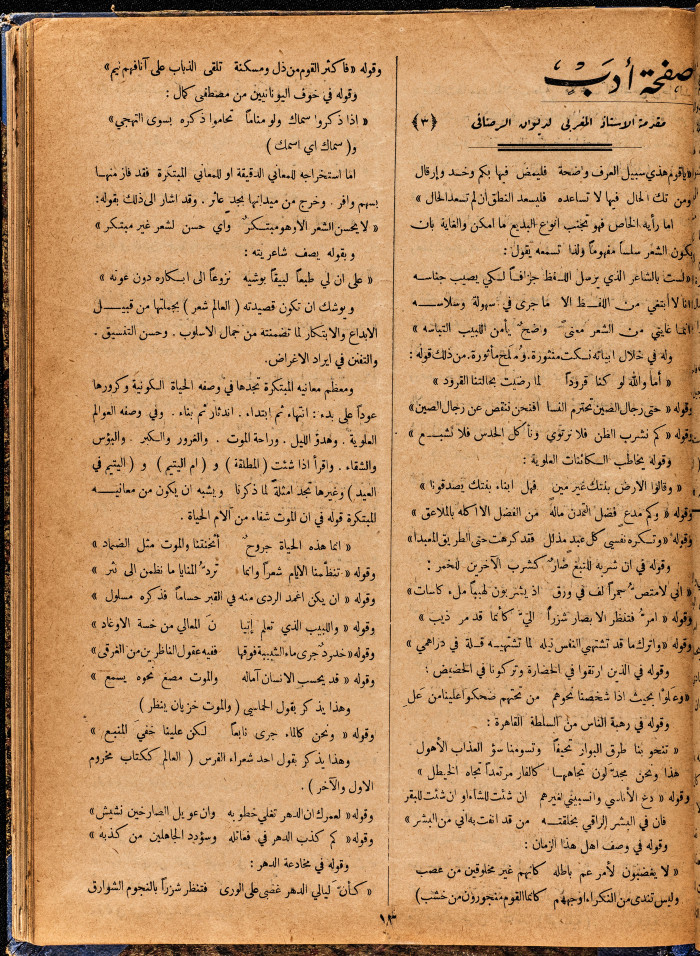 صفحة أدب
مقدمة الاستاذ المغربي لديوان الرصافي
﴿٣﴾
«ياقوم هذي سبيل العرف واضحة فليمض فيها بكم وخد وإرقال
ومن تك الحال فيها لا تساعده فليسعد النطق أن لم تسعد الحال»
اما رأيه الخاص فهو تجنب انواع البديع ما امكن والغاية بان
يكون الشعر سلساً مفهوماً ولذا تسمعه يقول :
«لست بالشاعر الذي يرسل اللفظ جزافاً لكي يصيب جناسه
انا لا أبتغي من اللفظ الا ما جرى في سهولة وسلاسه
انما غايتي من الشعر معنىً واضح يأمن اللبيب التباسه»
وله في خلال ابياته نكت منثورة. وملح مأثورة. من ذلك قوله :
« أما والله لو كنا قروداً لما رضيت بحالتنا القرود »
وقوله «حتى رجال الصين تحترم النسا أفنحن ننقص عن رجال الصين»
وقوله «كم نشرب الظن فلا نرتوي ونأكل الحدس فلا نشبع»
وقوله يخاطب الكائنات العلوية :
« وقالوا الارض بنتك غير مين فهل ابناء بنتك يصدقونا »
وقوله «وكم مدع فضل التمدن ماله من الفضل الا اكله بالملاعق»
وقوله «وتسكره نفسي كل عبد مذلل فقد كرهت حتى الطريق المعبدا»
وقوله في ان شربه للتبغ ضارّ كشرب الآخرين للخمر :
« اني لأمتصّ جمراً لف في ورق اذ يشربون لهيباً ملء كاسات »
وقوله « امرّ فتنظر الابصار شزراً اليّ كأنما قد مر ذيب »
وقوله «واترك ما قد تشتهي النفس نيله لما تشتهيه قلة في دراهمي»
وقوله في الذين ارتقوا في الحضارة وتركونا في الحضيض :
«وعلوا بحيث اذا شخصنا نحوهم من تحتهم ضحكوا علينا من عل
وقوله في رهبة الناس من السلطة القاهرة :
« تنحو بنا طرق البوار تحيفاً وتسومنا سؤ العذاب الأهول
هذا ونحن مجدّلون تجاهها كالفار مرتعداً تجاه الخيطل »
وقوله « دع الأناسي وانسبيني لغيرهم ان شئت للشاء او ان شئت للبقر
فان في البشر الراقي بخلقته من قد انفت به اني من البشر »
وقوله في وصف اهل هذا الزمان :
« لا يغضبون لأمر عم باطله كأنهم غير مخلوقين من عصب
وليس تندى من النكراء اوجههم كانما القوم منجورون من خشب)
وقوله «فاكثر القوم من ذل ومسكنة تلقى الذباب على آنافهم نيم»
وقوله في خوف اليونانيين من مصطفى كمال :
« اذا ذكروا سماك ولو مناماً تحاموا ذكره بسوى التهجي »
و( سماك اي اسمك )
اما استخراجه للمعاني الدقيقة او للمعاني المبتكرة فقد فاز منها
بسهم وافر . وخرج من ميدانها بمجد عاثر . وقد اشار الى ذلك بقوله :
« لا يحسن الشعر الا وهو مبتكرٌ وأي حسن لشعر غير مبتكر »
وبقوله يصف شاعريته :
« على ان لي طبعاً لبيقاً بوشيه نزوعاً الى ابكاره دون عونه »
ويوشك ان تكون قصيدته ( العالم شعر ) بجملتها من قبيل
الابداع والابتكار لما تضمنته من جمال الاسلوب . وحسن التنسيق .
والتفنن في ايراد الاغراض.
ومعظم معانيه المبتكرة تجدها في وصفه الحياة الكونية وكرورها
عوداً على بدء : انتهاء ثم ابتداء . اندثار ثم بناء . وفي وصفه العوالم
العلوية . وهدؤ الليل . وراحة الموت . والغرور والكبر . والبؤس
والشقاء . واقرأ اذا شئت ( المطلقة ) و ( ام اليتيم ) و ( اليتيم في
العيد ) وغيرها تجد امثلة لما ذكرنا ويشبه ان يكون من معانيه
المبتكرة قوله في ان الموت شفاء من آلام الحياة .
« انما هذه الحياة جروحٌ أثخنتنا والموت مثل الضماد »
وقوله « تنظمنا الايام شعراً وانما تردّ المنايا ما نظمن الى نثر »
وقوله « ان يكن اغمد الردى منه في القبر حساما فذكره مسلول »
وقوله « واللبيب الذي تعلم إتيا نَ المعالي من خسة الاوغاد »
وقوله «خدردٌ جرى ماء الشبيبة فوقها ففيه عقول الناظرين من الغرقى»
وقوله « قد يحسب الانسان آماله والموت مصغ نحوه يسمع »
وهذا يذكر بقول الحماسي ( والموت خزيان ينظر )
وقوله « ونحن كالماء جرى نابعاً لكن علينا خفي المنبع »
وهذا يذكر بقول احد شعراء الفرس ( العالم ككتاب مخروم
الاول والآخر ) .
وقوله «لعمرك ان الدهر تغلي خطوبه وان عويل الصارخين نشيش»
وقوله « كم كذب الدهر في فعائله وسؤدد الجاهلين من كذبه »
وقوله في مخادعة الدهر :
« كأنّ ليالي الدهر غضبى على الورى فتنظر شزراً بالنجوم الشوارق
١٣